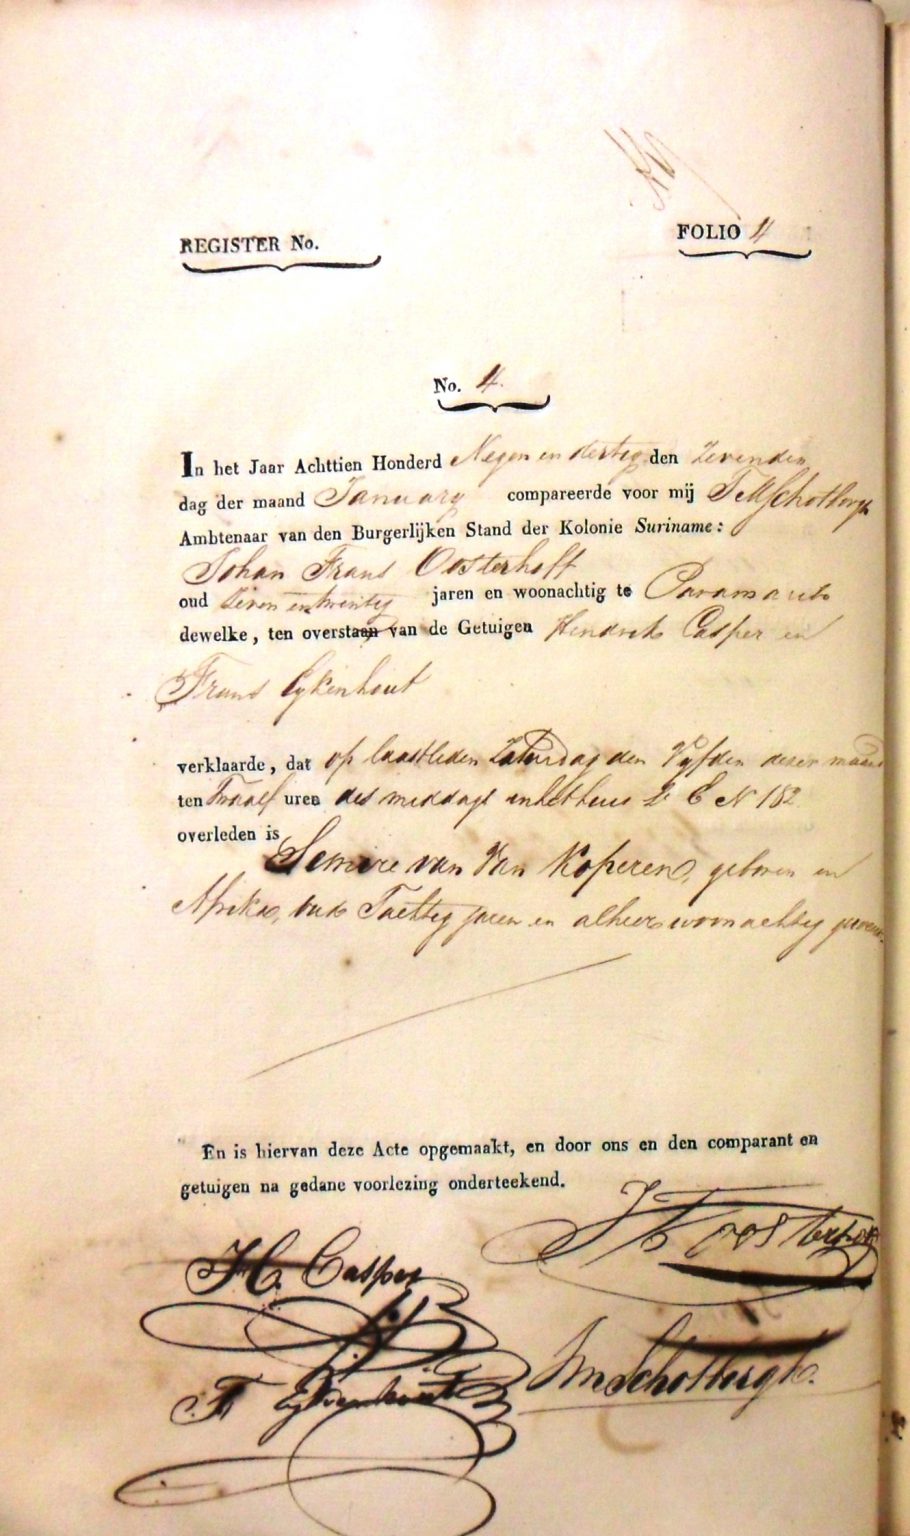 REGISTER No.
FOLIO 4
No. 4.
In het Jaar Achttien Honderd Negen en dertig den Zevenden
dag der maand January compareerde voor mij Schotborgh
Ambtenaar van den Burgerlijken Stand der Kolonie Suriname:
Johan Frans Oosterhoff
oud Zeven en twintig jaren en woonachtig te Paramaribo
dewelke, ten overstaan van de Getuigen Hendrik Casper en
Frans Eykenhout
verklaarde, dat op laastleden Zaturdag den Vyfden dezer maand
ten Twaalf uren des middags in het huis La E No 182
overleden is
Semire van Van Koperen, geboren in
Afrika, oud Tachtig jaren en alhier woonachtig geweest
En is hiervan deze Acte opgemaakt, en door ons en den comparant en
getuigen na gedane voorlezing onderteekend.
J F Oosterhoff
H. Casper
F Eykenhout
Schotborgh.